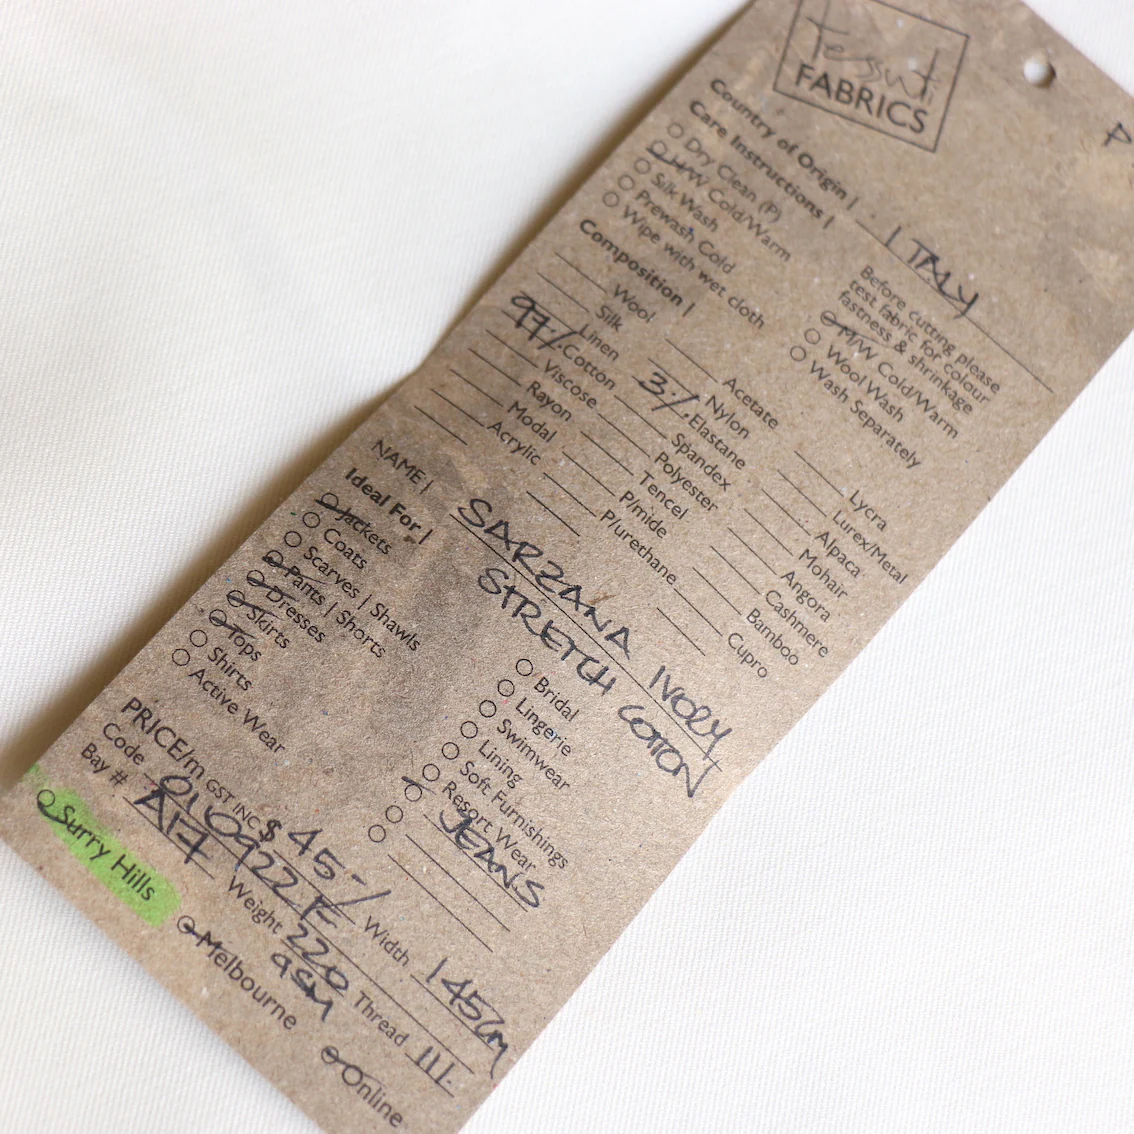 Tessuti
FABRICS
P
Country of Origin | ITALY
Care Instructions |
Dry Clean (P)
H/W Cold/Warm
Silk Wash
Prewash Cold
Wipe with wet cloth
Before cutting please
test fabric for colour
fastness & shrinkage
M/W Cold/Warm
Wool Wash
Wash Separately
Composition |
Wool
Silk
Linen
97% Cotton
Viscose
Rayon
Modal
Acrylic
Acetate
Nylon
3% Elastane
Spandex
Polyester
Tencel
P/mide
P/urethane
Lycra
Lurex/Metal
Alpaca
Mohair
Angora
Cashmere
Bamboo
Cupro
NAME | SARZANA IVORY
STRETCH COTTON
Ideal For |
Jackets
Coats
Scarves | Shawls
Pants | Shorts
Dresses
Skirts
Tops
Shirts
Active Wear
Bridal
Lingerie
Swimwear
Lining
Soft Furnishings
Resort Wear
JEANS
PRICE/m GST INC $ 45-/ Width 145cm
Code 010922F Weight 220 gsm Thread 111.
Bay # A17
Surry Hills
Melbourne
Online